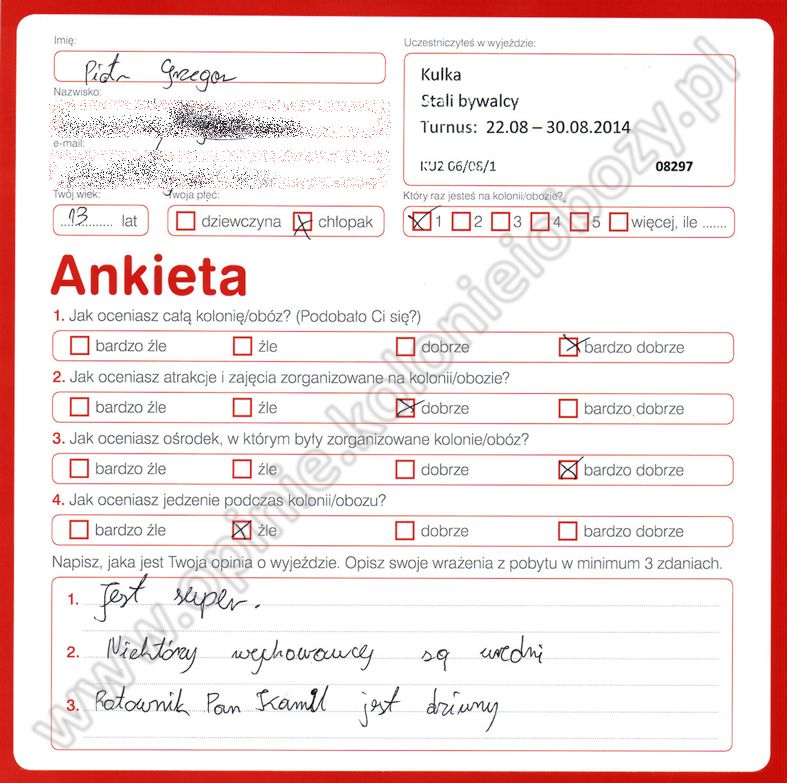 Imię:
Piotr Grzegorz
Uczestniczyłeś w wyjeździe:
Kulka
Stali bywalcy
Turnus: 22.08 – 30.08.2014
KU2 06/08/1 08297
Nazwisko:
e-mail:
Twój wiek:
13 lat
Twoja płeć:
dziewczyna chłopak
Który raz jesteś na kolonii/obozie?
1 2 3 4 5 więcej, ile .......
Ankieta
1. Jak oceniasz całą kolonię/obóz? (Podobało Ci się?)
bardzo źle źle dobrze bardzo dobrze
2. Jak oceniasz atrakcje i zajęcia zorganizowane na kolonii/obozie?
bardzo źle źle dobrze bardzo dobrze
3. Jak oceniasz ośrodek, w którym były zorganizowane kolonie/obóz?
bardzo źle źle dobrze bardzo dobrze
4. Jak oceniasz jedzenie podczas kolonii/obozu?
bardzo źle źle dobrze bardzo dobrze
Napisz, jaka jest Twoja opinia o wyjeździe. Opisz swoje wrażenia z pobytu w minimum 3 zdaniach.
1. Jest super.
2. Niektórzy wychowawcy są wredni
3. Ratownik Pan Kamil jest dziwny
www.opinie.kolonieiobozy.pl